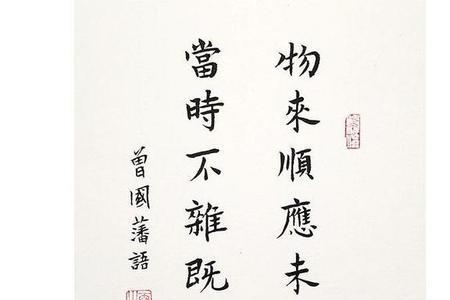 物來順應未
當時不雜既
曾國藩語